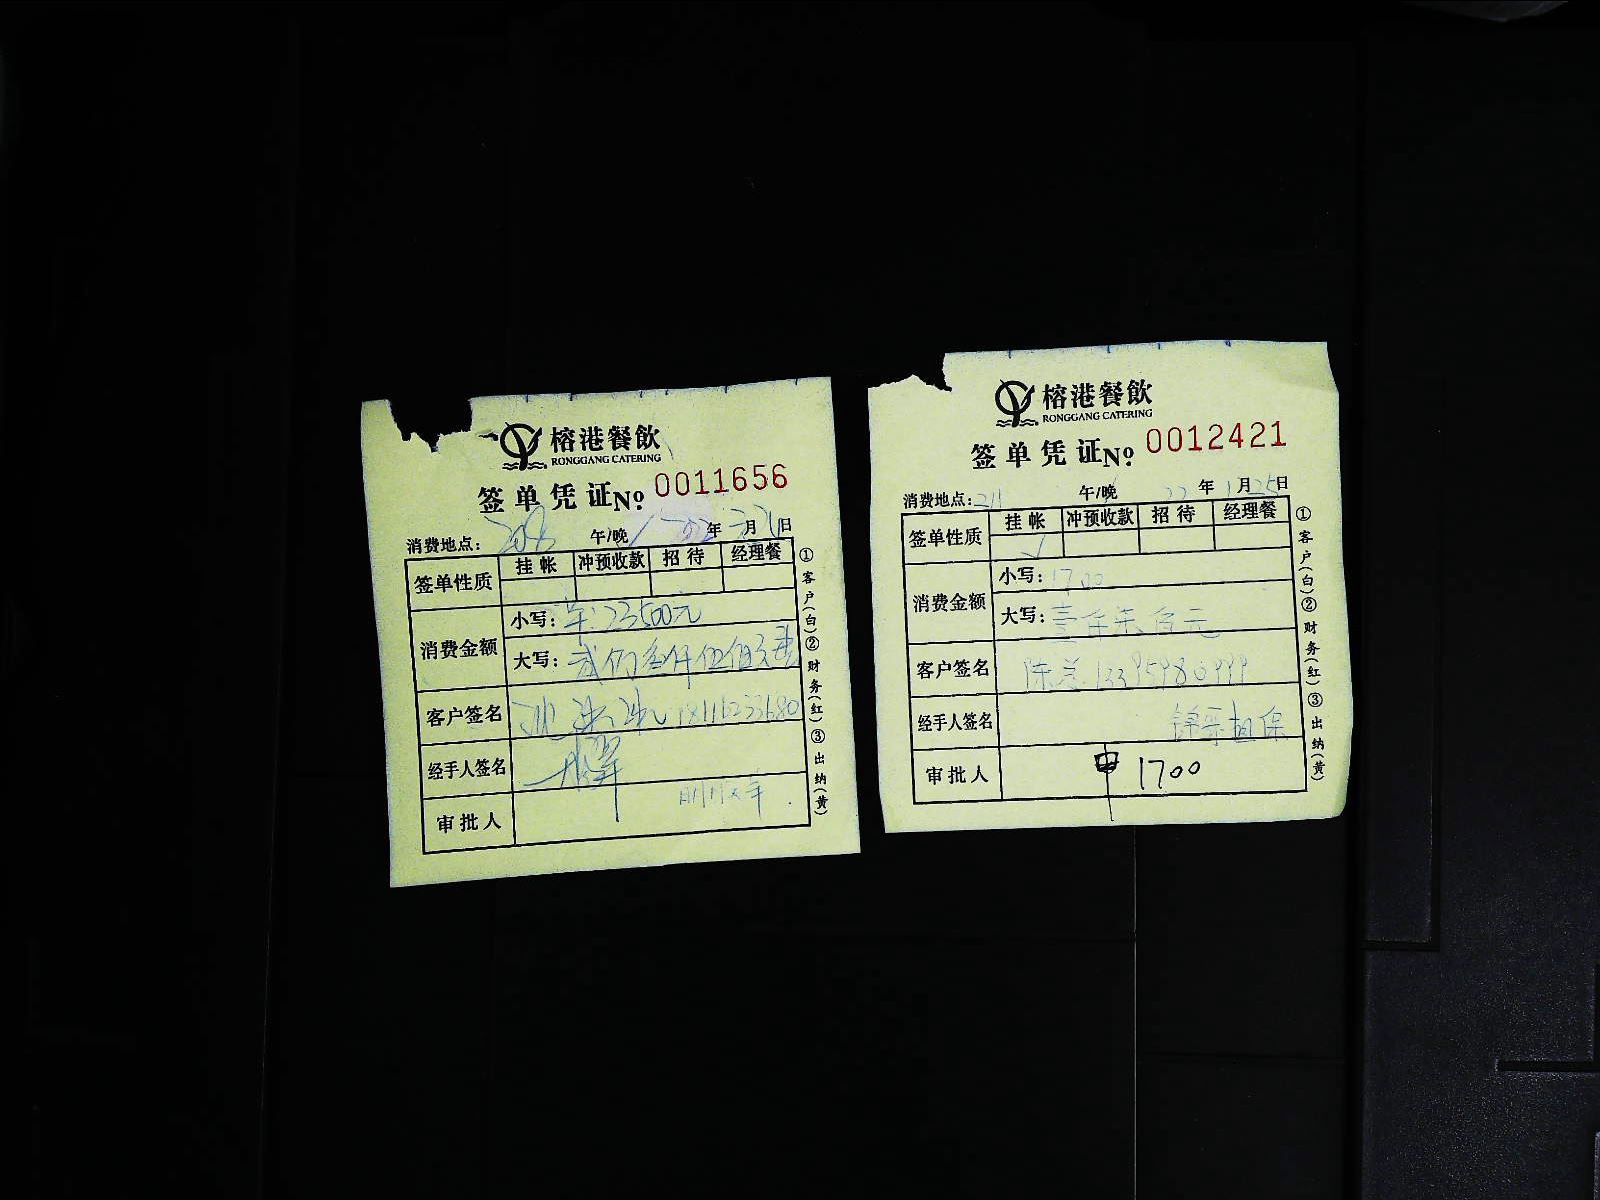 榕港餐飲
RONGGANG CATERING
签单凭证 No. 0011656
消费地点: 午/晚 年 月 日
签单性质 挂帐 冲预收款 招待 经理餐
消费金额 小写: 23500元
大写:
客户签名 18116233680
经手人签名
审批人
①客户(白)②财务(红)③出纳(黄)
榕港餐飲
RONGGANG CATERING
签单凭证 No. 0012421
消费地点: 211 午/晚 22年1月25日
签单性质 挂帐 冲预收款 招待 经理餐
√
消费金额 小写: 1700
大写: 壹仟柒佰元
客户签名 陈总 13395980999
经手人签名 担保
审批人 申 1700
①客户(白)②财务(红)③出纳(黄)